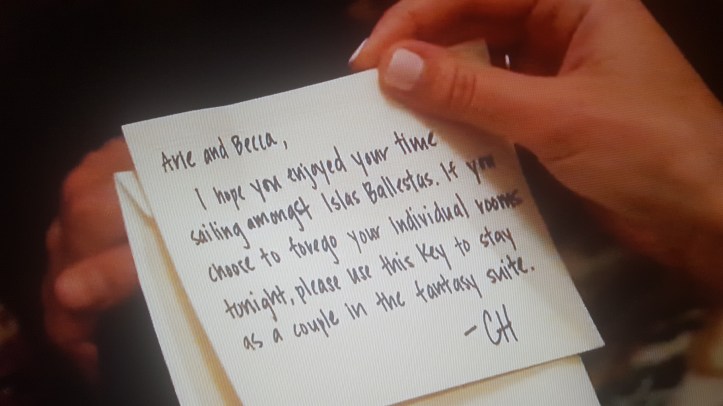 Arie and Becca,
I hope you enjoyed your time
sailing amongst Islas Ballestas. If you
choose to forego your individual rooms
tonight, please use this key to stay
as a couple in the fantasy suite.
-CH